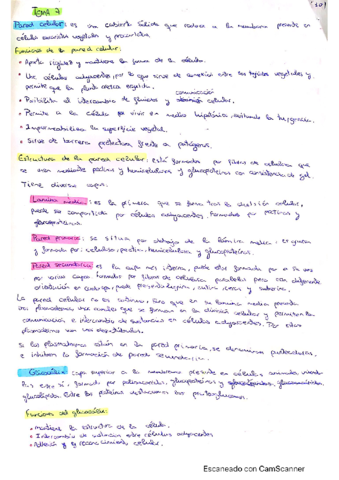 Tema 7
Pared celular: es una cubierta sólida que rodea a la membrana presente en
células vegetales y procariotas.
Funciones de la pared celular:
• Aporta rigidez y mantiene la forma de la célula.
• Une células adyacentes, por lo que sirve de conexión entre los tejidos vegetales y
permite que la planta esté erguida.
comunicación
• Posibilita el intercambio de fluidos y celular.
• Permite a la célula vivir en medios hipotónicos, evitando la turgencia.
• Impermeabiliza la superficie vegetal.
• Sirve de barrera protectora frente a patógenos.
Estructura de la pared celular: está formada por fibras de celulosa que
se unen mediante pectina y hemicelulosa y glucoproteínas con consistencia de gel.
Tiene diversas capas.
Lámina media: es la primera que se forma tras la división celular,
puede ser compartida por células adyacentes, formada por pectinas y
glucoproteínas.
Pared primaria: se sitúa por debajo de la lámina media, es gruesa
y formada por: celulosa, pectina, hemicelulosa y glucoproteínas.
Pared secundaria: es la capa más interna, puede estar formada por a su vez
por varias capas formadas por fibras de celulosa paralelas pero con diferente
orientación en cada capa, puede presentar lignina, cutina, ceras y suberina.
La pared celular no es continua, sino que en su lámina media presenta
los plasmodesmos, unos canales que se forman en la división celular y permiten la
comunicación e intercambio de sustancias en células adyacentes. Por estos
plasmodesmos
Si los plasmodesmos están en la pared primaria, se denominan punteaduras,
e inhiben la formación de pared secundaria.
Glucocálix: capa superior a la membrana presente en células animales,
formada por polisacáridos, glucoproteínas y
glucolípidos. Entre las proteínas destacamos los proteoglucanos.
Funciones del glucocálix:
• Mantiene la estructura de la célula.
• Intercambio de materia entre células adyacentes
• Adhesión y reconocimiento celular.
Escaneado con CamScanner